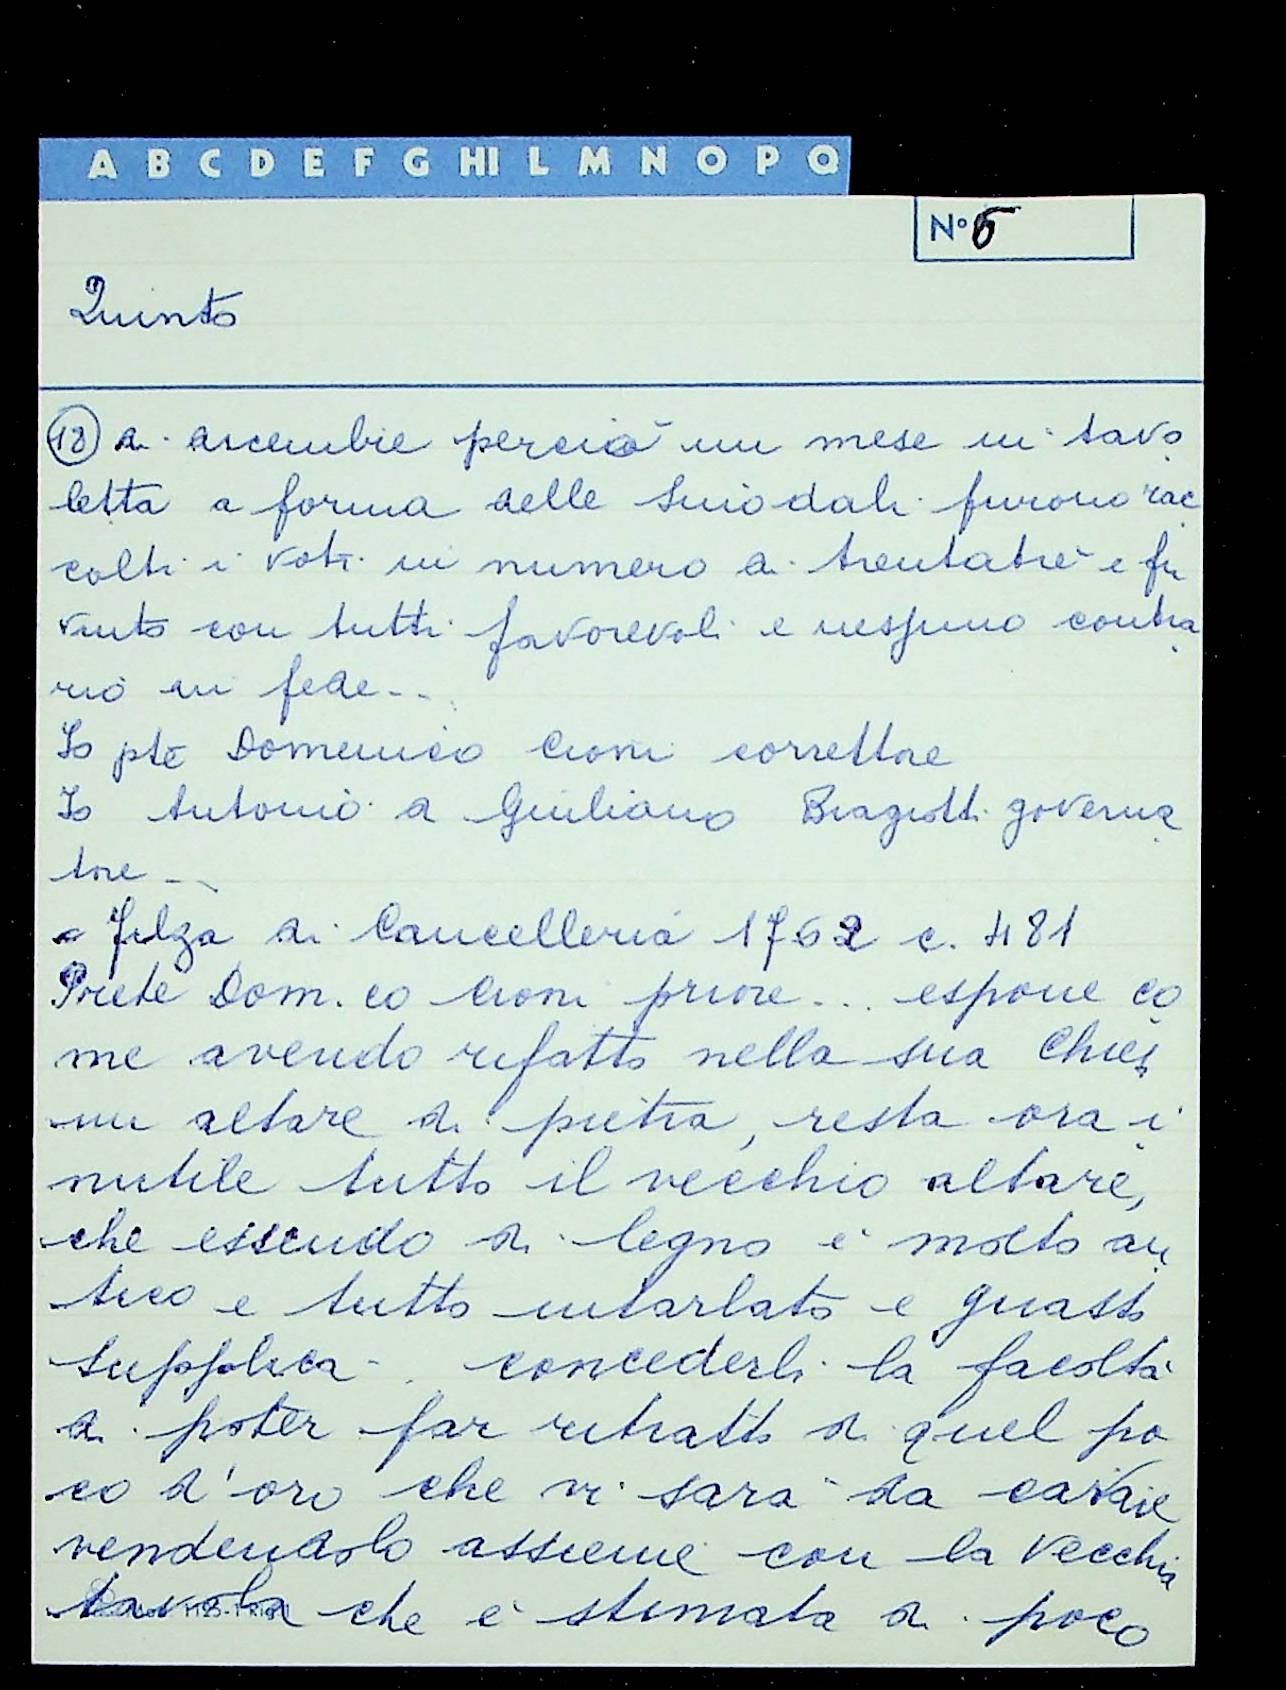 A B C D E F G HI L M N O P Q
N° 5
Quinto
18 di ascembie perciò un mese in tavo
letta a forma delle sinodali furono rac
colti i voti in numero di trentatre e fu
vinto con tutti favorevoli e nessuno contra
rio in fede...
Io pte Domenico Cioni correttore
Io Antonio di Giuliano Biagiotti governa
tore ..
a Filza di Cancelleria 1762 c. 481
Priete Dom.co Cioni priore... espone co
me avendo rifatto nella sua Chies
un altare di pietra, resta ora i
nutile tutto il vecchio altare,
che essendo di legno è molto an
tico e tutto intarlato e guasto
supplica .. concederli la facoltà
di poter far ritratto di quel po
co d'oro che vi sarà da cavare
vendendolo assieme con la vecchia
tavola che è stimata di poco